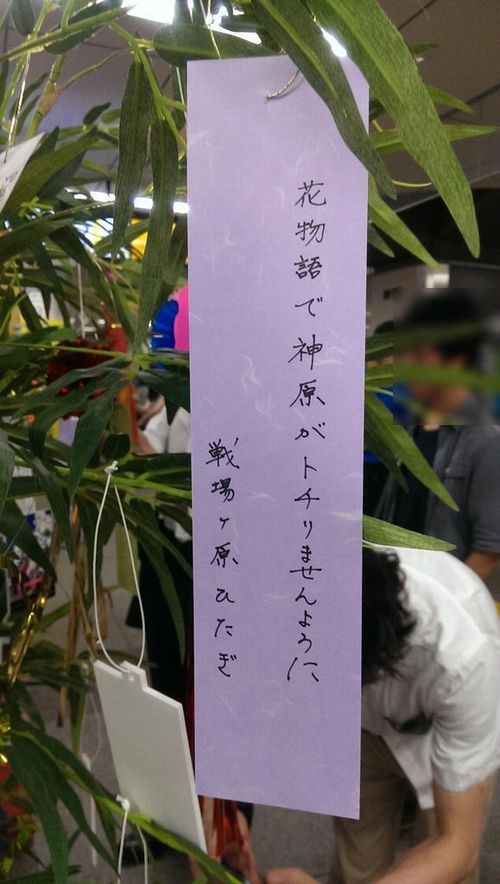 花物語で神原がトチりませんように
戦場ヶ原ひたぎ